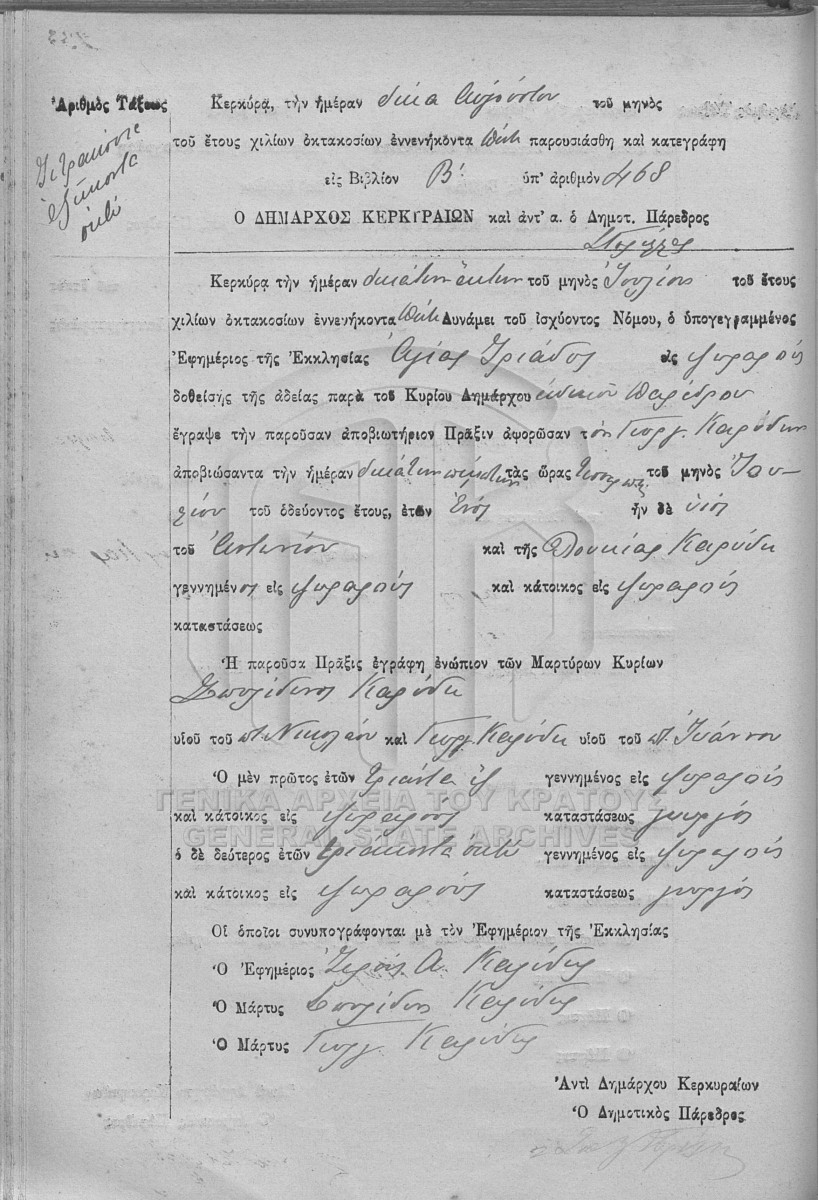 Ἀριθμὸς Τάξεως
Τετρακόσια
ἑξήκοντα
ὀκτώ
Κερκύρᾳ, τὴν ἡμέραν δέκα Αὐγούστου τοῦ μηνὸς
τοῦ ἔτους χιλίων ὀκτακοσίων ἐννενήκοντα πέντε παρουσιάσθη καὶ κατεγράφη
εἰς Βιβλίον Β! ὑπ' ἀριθμὸν 468
Ο ΔΗΜΑΡΧΟΣ ΚΕΡΚΥΡΑΙΩΝ καὶ ἀντ' α. ὁ Δημοτ. Πάρεδρος
Κερκύρᾳ τὴν ἡμέραν δεκάτην ἕκτην τοῦ μηνὸς Ἰουλίου τοῦ ἔτους
χιλίων ὀκτακοσίων ἐννενήκοντα πέντε Δυνάμει τοῦ ἰσχύοντος Νόμου, ὁ ὑπογεγραμμένος
Ἐφημέριος τῆς Ἐκκλησίας Ἁγίας Τριάδος εἰς Ψωραρούς
δοθείσης τῆς ἀδείας παρὰ τοῦ Κυρίου Δημάρχου εἰδικοῦ Παρέδρου
ἔγραψε τὴν παροῦσαν ἀποβιωτήριον Πρᾶξιν ἀφορῶσαν τὸν Γεώργ. Καρύδην
ἀποβιώσαντα τὴν ἡμέραν δεκάτην πέμπτην τὰς ὥρας τοῦ μηνὸς Ἰου-
λίου τοῦ ὁδεύοντος ἔτους, ἐτῶν Ἑνός ἦν δὲ υἱός
τοῦ Ἀντωνίου καὶ τῆς Λουκίας Καρύδη
γεννημένος εἰς Ψωραρούς καὶ κάτοικος εἰς Ψωραρούς
καταστάσεως
Ἡ παροῦσα Πρᾶξις ἐγράφη ἐνώπιον τῶν Μαρτύρων Κυρίων
Σπυρίδωνος Καρύδη
υἱοῦ τοῦ π. Νικολάου καὶ Γεωργ. Καρύδη υἱοῦ τοῦ π. Ἰωάννου
Ὁ μὲν πρῶτος ἐτῶν τριάντα ἕξ γεννημένος εἰς Ψωραρούς
ΓΕΝΙΚΑ ΑΡΧΕΙΑ ΤΟΥ ΚΡΑΤΟΥΣ
καὶ κάτοικος εἰς Ψωραρούς καταστάσεως γεωργός
GENERAL STATE ARCHIVES
ὁ δὲ δεύτερος ἐτῶν τριάκοντα ὀκτώ γεννημένος εἰς Ψωραρούς
καὶ κάτοικος εἰς Ψωραρούς καταστάσεως γεωργός
Οἱ ὁποῖοι συνυπογράφονται μὲ τὸν Ἐφημέριον τῆς Ἐκκλησίας
Ὁ Ἐφημέριος Ἱερεύς Α. Καρύδης
Ὁ Μάρτυς Σπυρίδων Καρύδης
Ὁ Μάρτυς Γεωργ. Καρύδης
Ἀντὶ Δημάρχου Κερκυραίων
Ὁ Δημοτικὸς Πάρεδρος